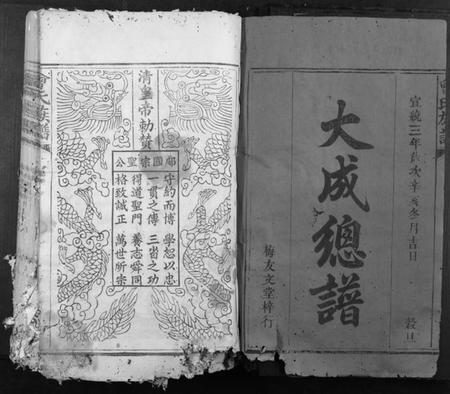 宣統三年歲次辛亥冬月吉日
穀旦
大成總譜
梅友文堂梓行
清皇帝勅贊
郕國宗聖公
守約而博 學恕以忠
一貫之傳 三省之功
得道聖門 養志舜同
格致誠正 萬世所宗
曾氏族譜